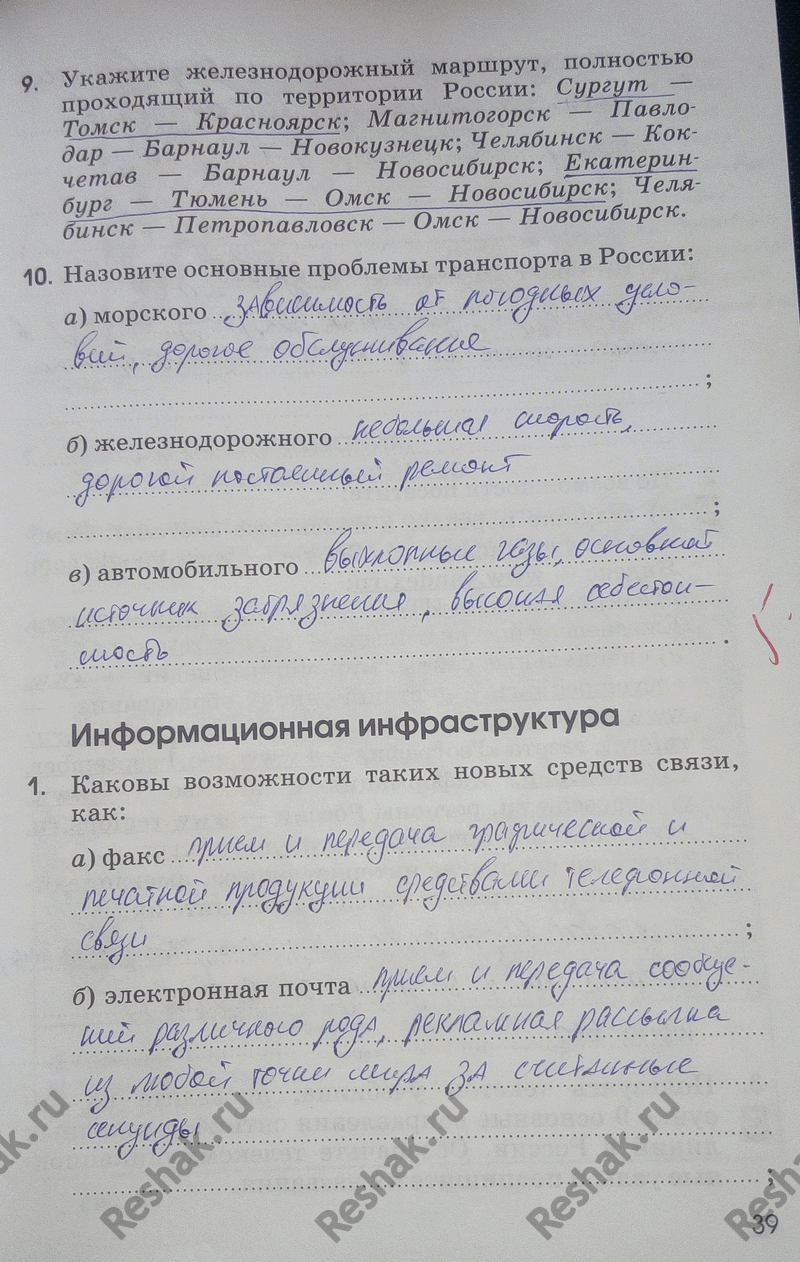 9. Укажите железнодорожный маршрут, полностью
проходящий по территории России: Сургут —
Томск — Красноярск; Магнитогорск — Павло-
дар — Барнаул — Новокузнецк; Челябинск — Кок-
четав — Барнаул — Новосибирск; Екатерин-
бург — Тюмень — Омск — Новосибирск; Челя-
бинск — Петропавловск — Омск — Новосибирск.
10. Назовите основные проблемы транспорта в России:
а) морского зависимость от погодных усло-
вий, дорогое обслуживание
;
б) железнодорожного небольшая скорость,
дорогой постоянный ремонт
;
в) автомобильного выхлопные газы, основной
источник загрязнения, высокая себестои-
мость .
Информационная инфраструктура
1. Каковы возможности таких новых средств связи,
как:
а) факс прием и передача графической и
печатной продукции средствами телефонной
связи ;
б) электронная почта прием и передача сообще-
ний различного рода, рекламная рассылка
из любой точки мира за считанные
секунды
;
Reshak.ru Reshak.ru Reshak.ru Reshak.ru Reshak.ru
39